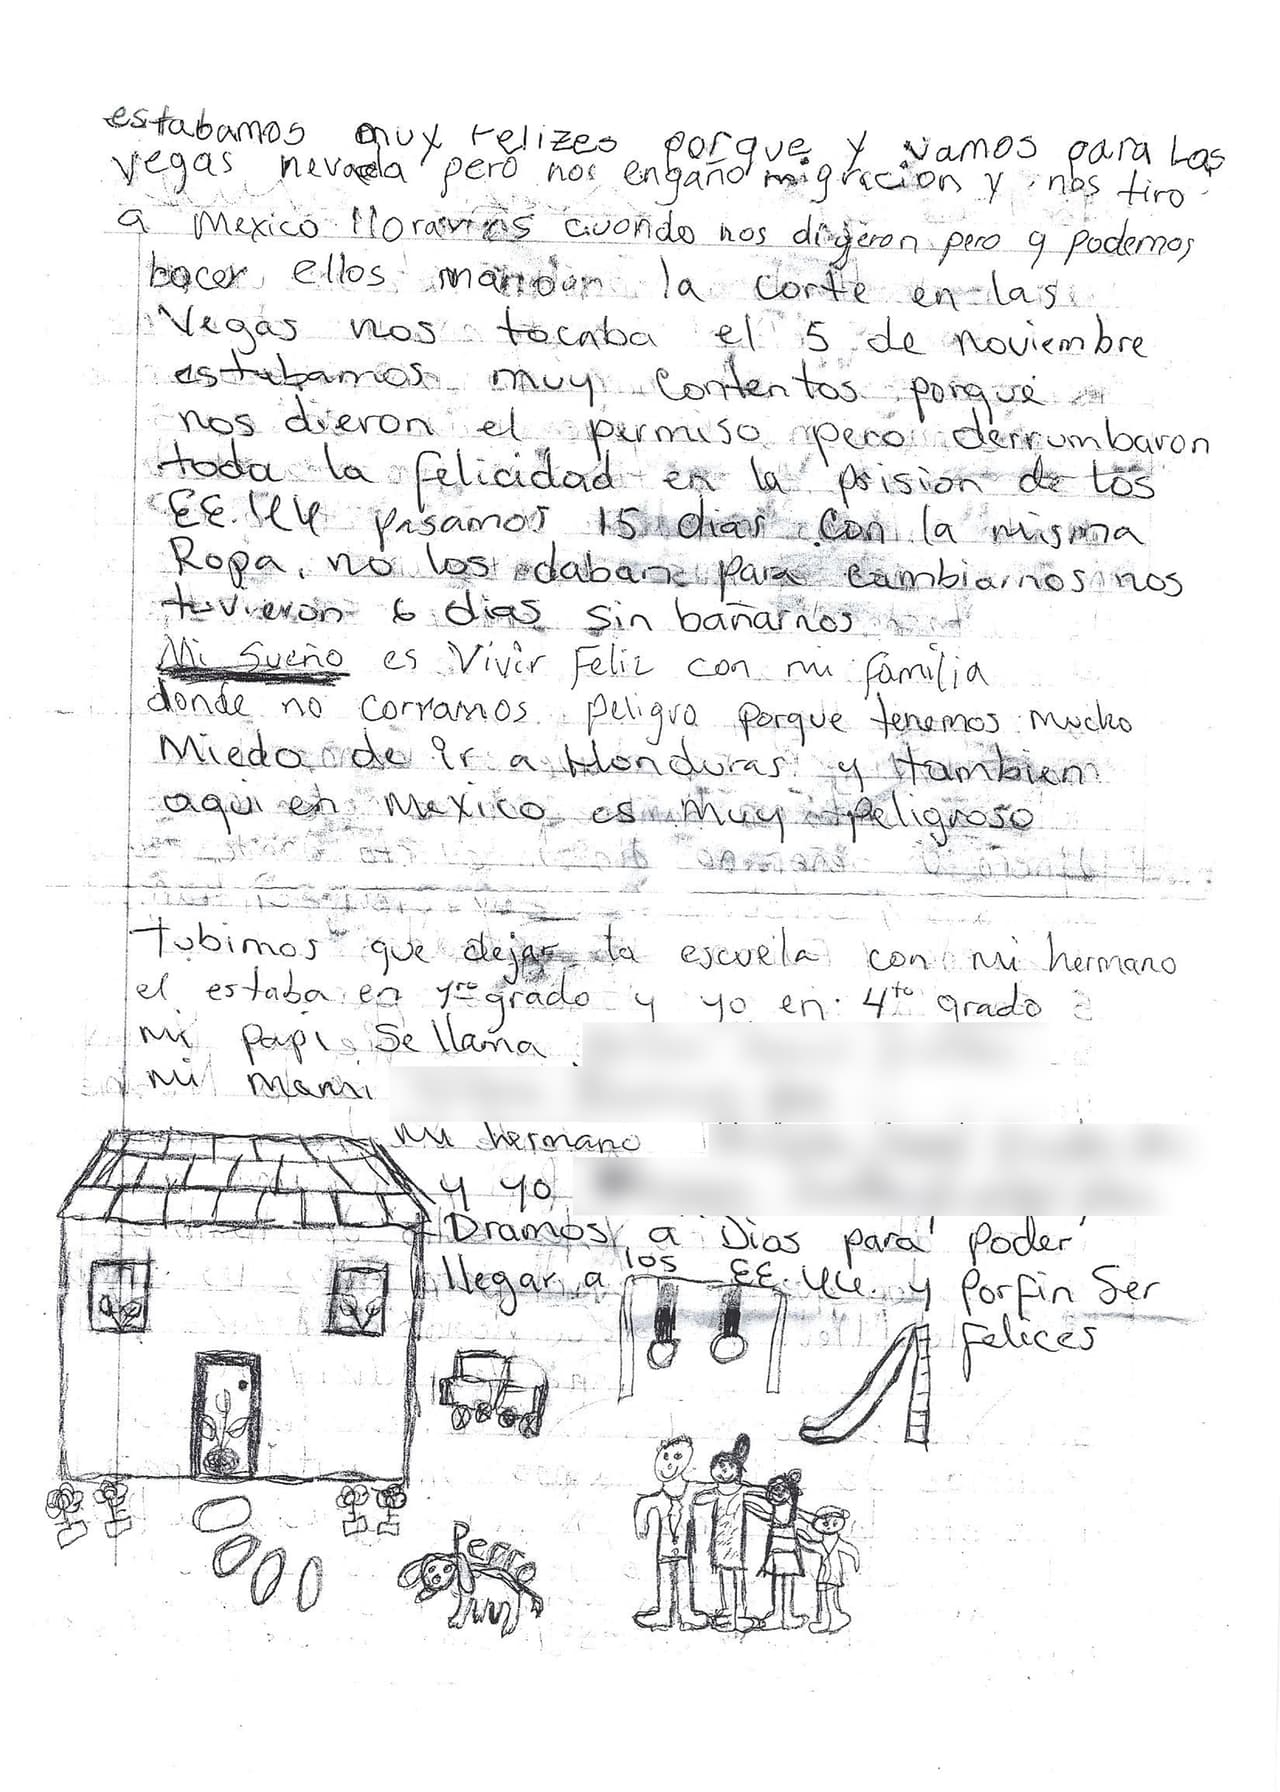 estabamos muy felizes porque y vamos para Las
Vegas nevada pero nos engaño migracion y nos tiro
a Mexico lloramos cuondo nos digeron pero q podemos
hacer ellos mandan la corte en las
Vegas nos tocaba el 5 de noviembre
estabamos muy contentos porque
nos dieron el permiso pero derrumbaron
toda la felicidad en la prision de los
EE.UU pasamos 15 dias con la misma
Ropa, no los daban para cambiarnos nos
tuvieron 6 dias sin bañarnos
Mi Sueño es Vivir Feliz con mi familia
donde no corramos peligro porque tenemos mucho
Miedo de ir a Honduras y tambien
aqui en Mexico es muy peligroso
tubimos que dejar la escuela con mi hermano
el estaba en 1ro grado y yo en 4to grado
mi papi se llama
mi mami
mi hermano
y yo
Oramos a Dios para poder
llegar a los EE.UU. y Porfin Ser
felices
Perro